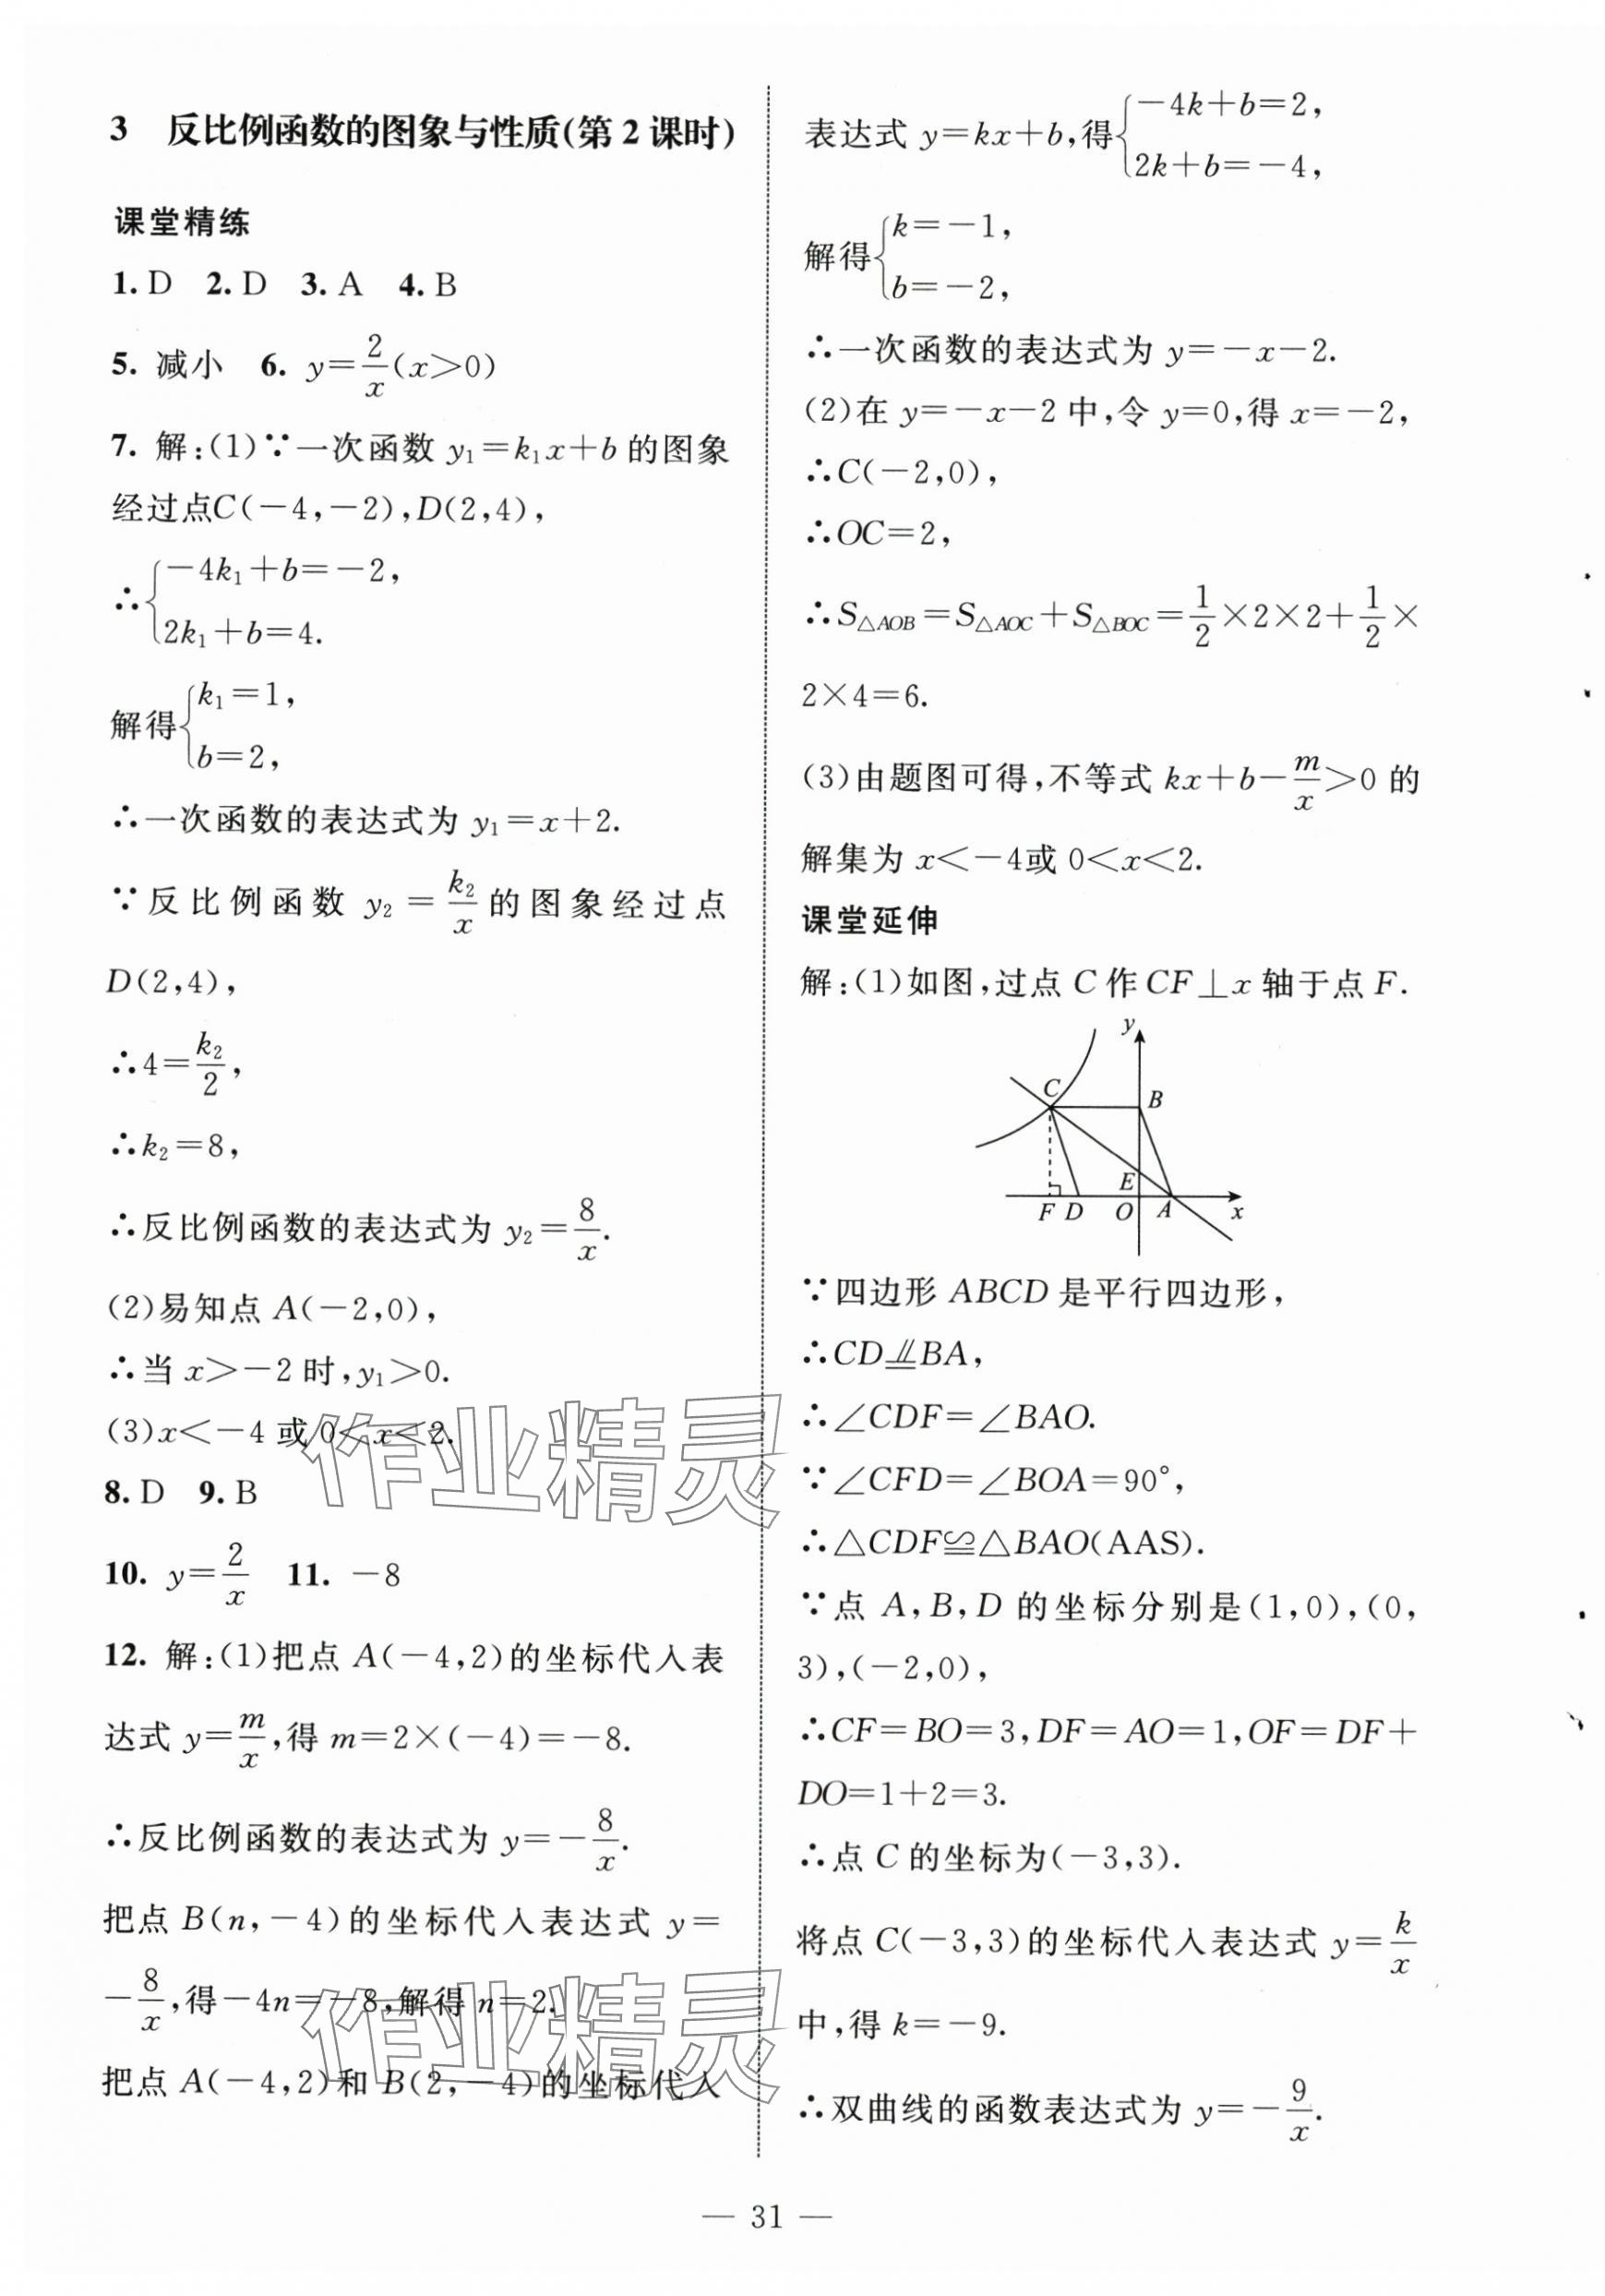 3 反比例函数的图象与性质(第2课时)
课堂精练
1. D 2. D 3. A 4. B
5. 减小 6. y=2/x(x>0)
7. 解:(1)∵一次函数 y₁=k₁x+b 的图象
经过点C(-4,-2),D(2,4),
∴{-4k₁+b=-2,
2k₁+b=4.
解得{k₁=1,
b=2,
∴一次函数的表达式为 y₁=x+2.
∵反比例函数 y₂=k₂/x的图象经过点
D(2,4),
∴4=k₂/2,
∴k₂=8,
∴反比例函数的表达式为 y₂=8/x.
(2)易知点 A(-2,0),
∴当 x>-2 时,y₁>0.
(3)x<-4 或 0<x<2.
8. D 9. B
10. y=2/x 11. -8
12. 解:(1)把点 A(-4,2)的坐标代入表
达式 y=m/x,得 m=2×(-4)=-8.
∴反比例函数的表达式为 y=-8/x.
把点 B(n,-4)的坐标代入表达式 y=
-8/x,得-4n=-8,解得 n=2.
把点 A(-4,2)和 B(2,-4)的坐标代入
表达式 y=kx+b,得{-4k+b=2,
2k+b=-4,
解得{k=-1,
b=-2,
∴一次函数的表达式为 y=-x-2.
(2)在 y=-x-2 中,令 y=0,得 x=-2,
∴C(-2,0),
∴OC=2,
∴S△AOB=S△AOC+S△BOC=1/2×2×2+1/2×
2×4=6.
(3)由题图可得,不等式 kx+b-m/x>0 的
解集为 x<-4或 0<x<2.
课堂延伸
解:(1)如图,过点 C 作 CF⊥x 轴于点 F.
y
C
B
E
F D O A x
∵四边形 ABCD 是平行四边形,
∴CD⫽BA,
∴∠CDF=∠BAO.
∵∠CFD=∠BOA=90°,
∴△CDF≌△BAO(AAS).
∵点 A,B,D 的坐标分别是(1,0),(0,
3),(-2,0),
∴CF=BO=3,DF=AO=1,OF=DF+
DO=1+2=3.
∴点 C 的坐标为(-3,3).
将点 C(-3,3)的坐标代入表达式 y=k/x
中,得 k=-9.
∴双曲线的函数表达式为 y=-9/x.
作业精灵
作业精灵
— 31 —